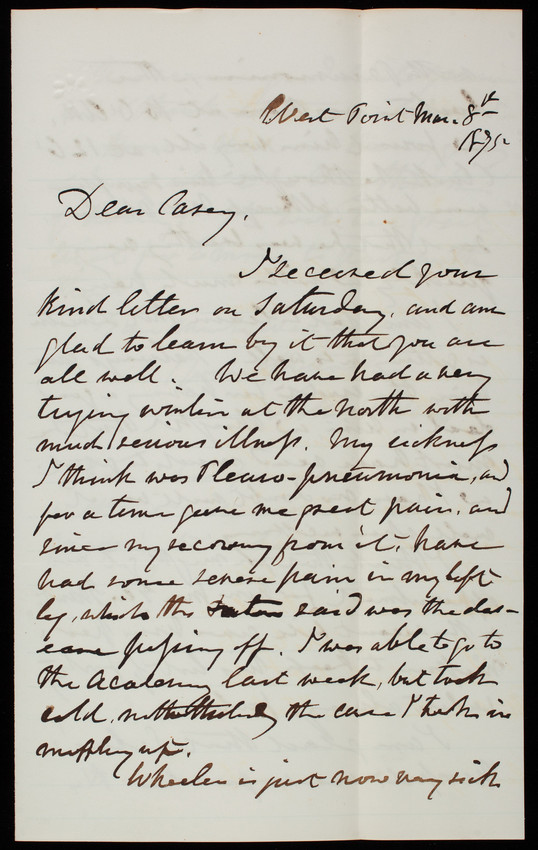 West Point Mar. 8th
1875
Dear Casey,
I received your
kind letter on Saturday, and am
glad to learn by it that you are
all well. We have had a very
trying winter at the north with
much serious illness. My sickness
I think was Pleuro-pneumonia, and
for a time gave me great pain, and
since my recovery from it, have
had some severe pain in my left
leg, which the said was the dis-
ease passing off. I was able to go to
the Academy last week, but took
cold, notwithstanding the care I took in
muffling up.
Wheeler is just now very sick